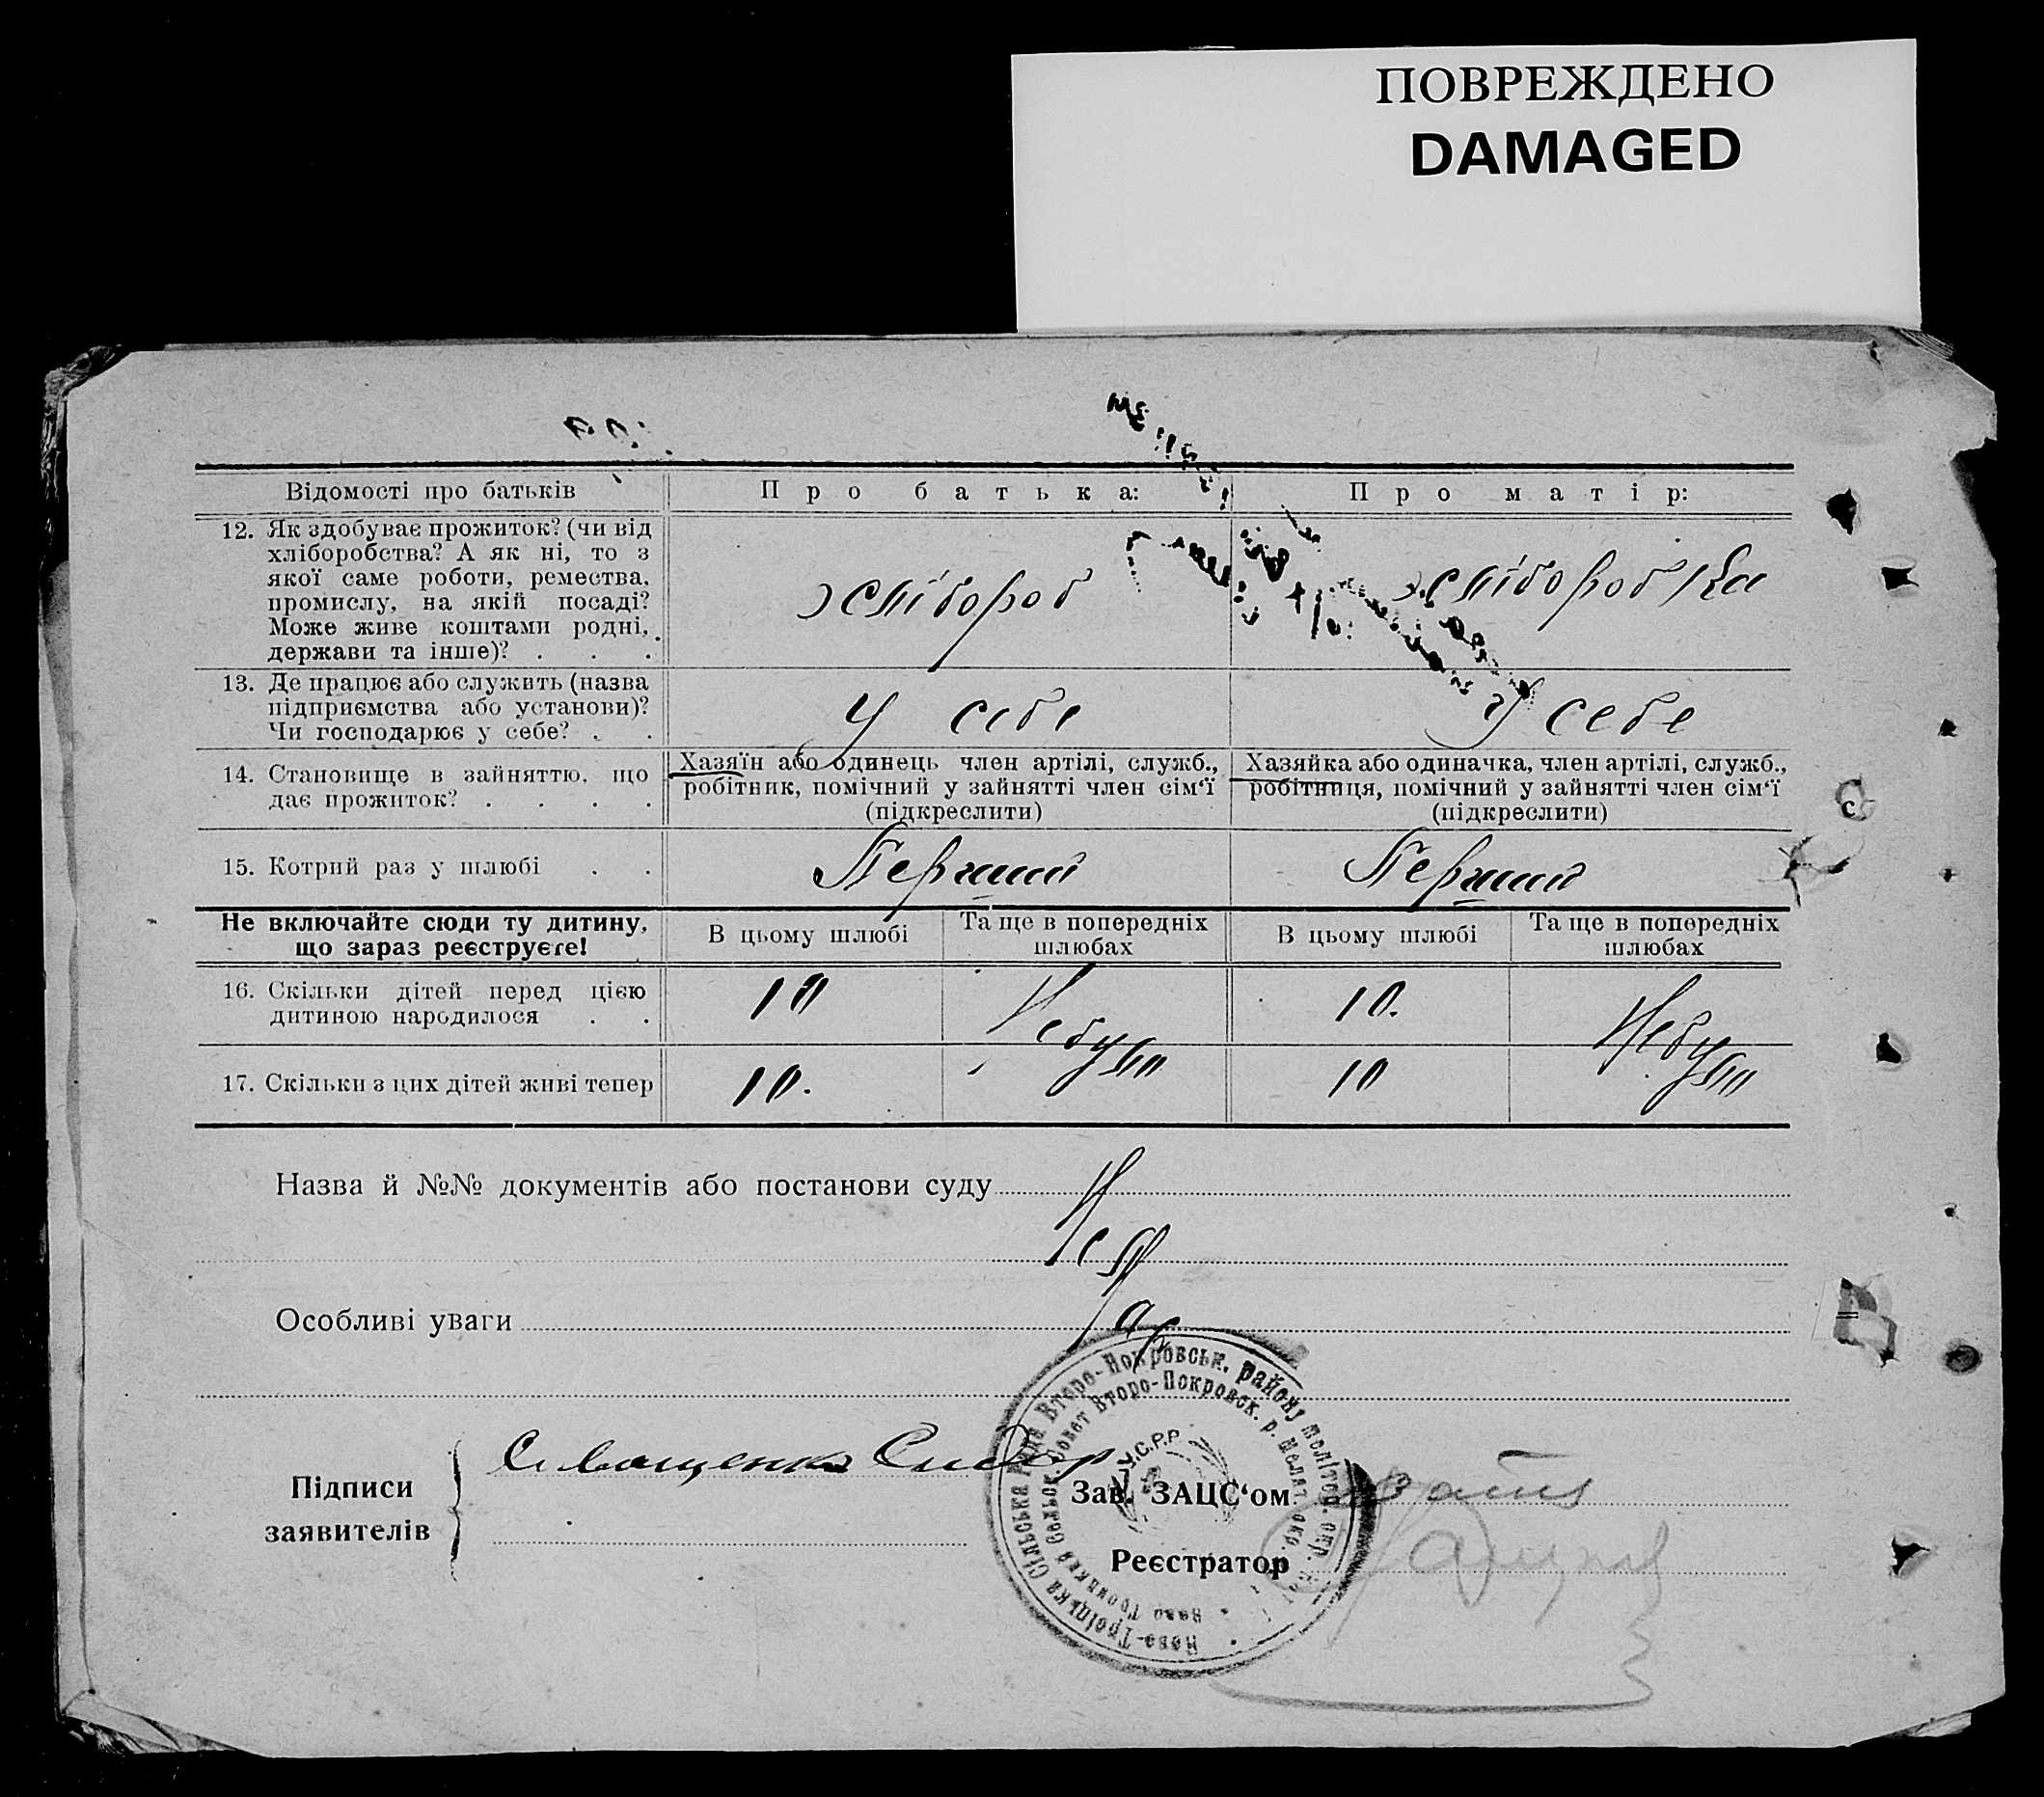 ПОВРЕЖДЕНО
DAMAGED
Відомості про батьків
Про батька:
Про матір:
12. Як здобуває прожиток? (чи від
хліборобства? А як ні, то з
якої саме роботи, ремества,
промислу, на якій посаді?
Може живе коштами родні,
держави та інше)? . . .
хлібороб
хліборобка
13. Де працює або служить (назва
підприємства або установи)?
Чи господарює у себе? . .
У себе
У себе
14. Становище в зайняттю, що
дає прожиток? . . . .
Хазяїн або одинець член артілі, служб.,
робітник, помічний у зайнятті член сім‘ї
(підкреслити)
Хазяйка або одиначка, член артілі, служб.,
робітниця, помічний у зайнятті член сім‘ї
(підкреслити)
15. Котрий раз у шлюбі . .
Перший
Перший
Не включайте сюди ту дитину,
що зараз реєструєте!
В цьому шлюбі
Та ще в попередніх
шлюбах
В цьому шлюбі
Та ще в попередніх
шлюбах
16. Скільки дітей перед цією
дитиною народилося . .
10
10.
17. Скільки з цих дітей живі тепер
10.
10
Небуло
Небуло
Назва й №№ документів або постанови суду
Особливі уваги
Підписи
заявителів
Сидор
Зав. ЗАЦС‘ом
Реєстратор
Ново-Троїцька Сільська Рада Второ-Покровськ. району Меліт. окр.
Ново Троицкий Сельск. Совет Второ-Покровск. р. Мелит. окр.
У.С.Р.Р.